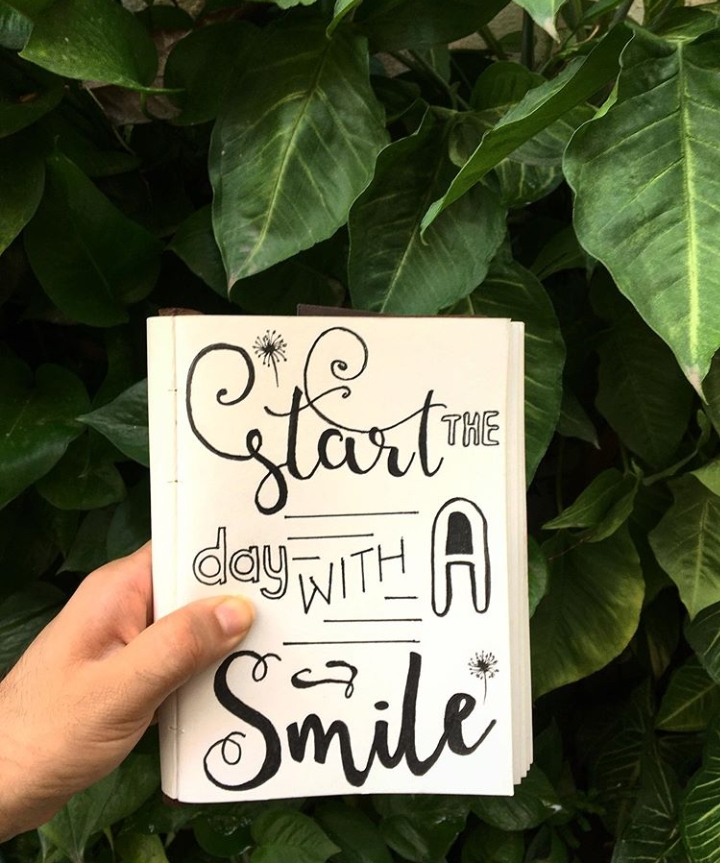 start THE
day WITH A
Smile